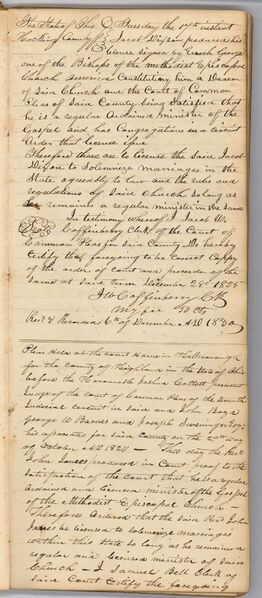 The State of Ohio Tuesday the 17th instant
Hocking County Jacob Dixon produced his
License signed by Enoch George
one of the Bishops of the Methodist Episcopal
Church America Constituting him a Deacon
of Said Church and the Court of Common
Pleas of Said County being Satisfied that
he is a regular Ordained minister of the
Gospel and has Congregations in a circuit
Order that License issue
Therefore these are to license the Said Jacob
Dixon to Solemnize marriages in the
State agreeably to law and the rules and
regulations of Said Church so long as
he remains a regular minister in the same
In testimony whereof I Jacob W
Coffinberry Clerk of the Court of
Common Pleas for Said County Do hereby
Certify that foregoing to be Correct Copy
of the order of Court and proceedings of the
Same at Said term December 28th 1825
J W Coffinberry Clk
my fee 50 cts
Recd & Recorded 6th of December AD 1830
Pleas Held at the court House in Hillsborough
for the County of Highland in the State of Ohio
before the Honourable Joshua Collett president
Judge of the Court of Common Pleas of the Seventh
Judicial circuit in Said and John Boyd
George W Barnes and Joseph Swearingen Esqrs
his associates for Said County on the day
of October AD 1824 — This day the Revd
John Janes produced in Court proof to the
Satisfaction of the Court that he is a regular
Ordained and licensed minister of the Gospel
of the Methodist Episcopal Church
Therefore Ordered that the Said Revd John
Janes be licensed to solemnize marriages
within this State so long as he remains a
regular and licensed minister of Said
Church — I Samuel Bell Clerk of
Said Court Certify the foregoing